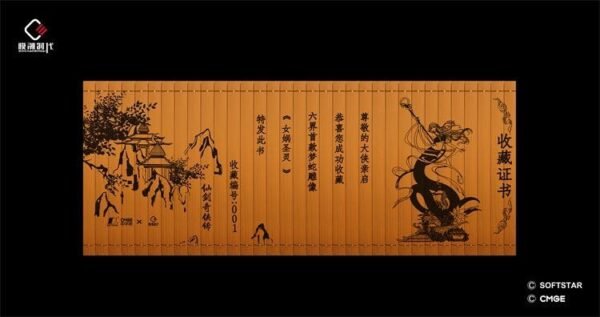 极制时代
收藏证书
尊敬的大侠亲启
恭喜您成功收藏
六界首款梦蛇雕像
《女娲圣灵》
特发此书
收藏编号:001
仙剑奇侠传
CMGE
×
© SOFTSTAR
© CMGE